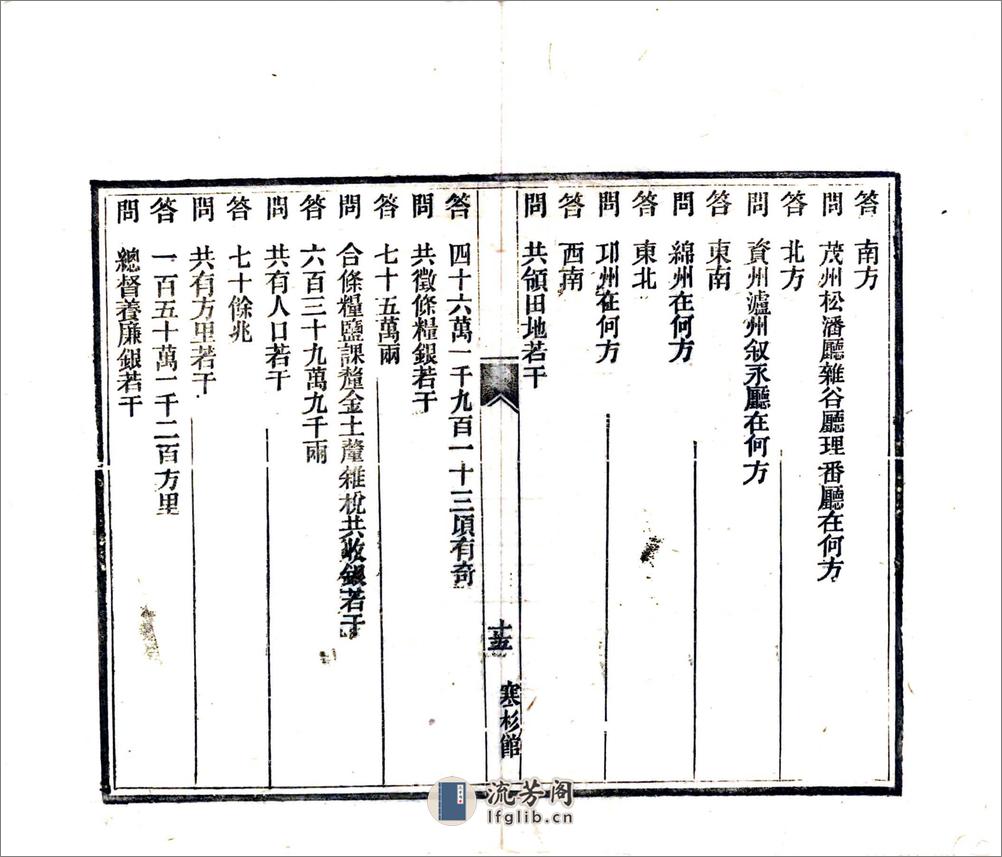 答 南方
問 茂州松潘廳雜谷廳理番廳在何方
答 北方
問 資州瀘州叙永廳在何方
答 東南
問 綿州在何方
答 東北
問 邛州在何方
答 西南
問 共領田地若干
十五
寒杉館
答 四十六萬一千九百一十三頃有奇
問 共徵條糧銀若干
答 七十五萬兩
問 合條糧鹽課釐金土釐雜稅共收銀若干
答 六百三十九萬九千兩
問 共有人口若干
答 七十餘兆
問 共有方里若干
答 一百五十萬一千二百方里
問 總督養廉銀若干
流芳阁
lfglib.cn